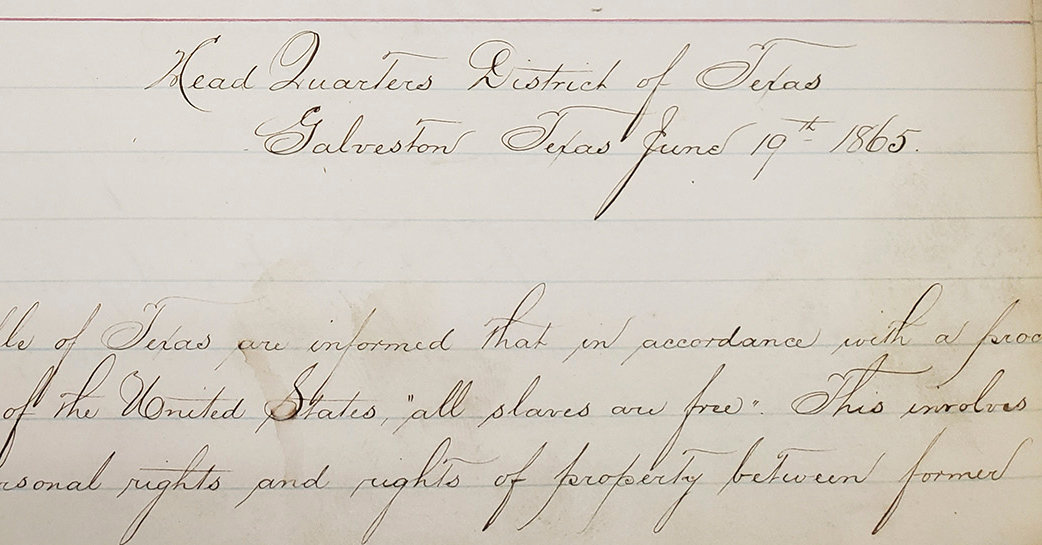 Head Quarters District of Texas
Galveston Texas June 19th 1865.
le of Texas are informed that in accordance with a proc
of the United States, "all slaves are free". This involves
rsonal rights and rights of property between former